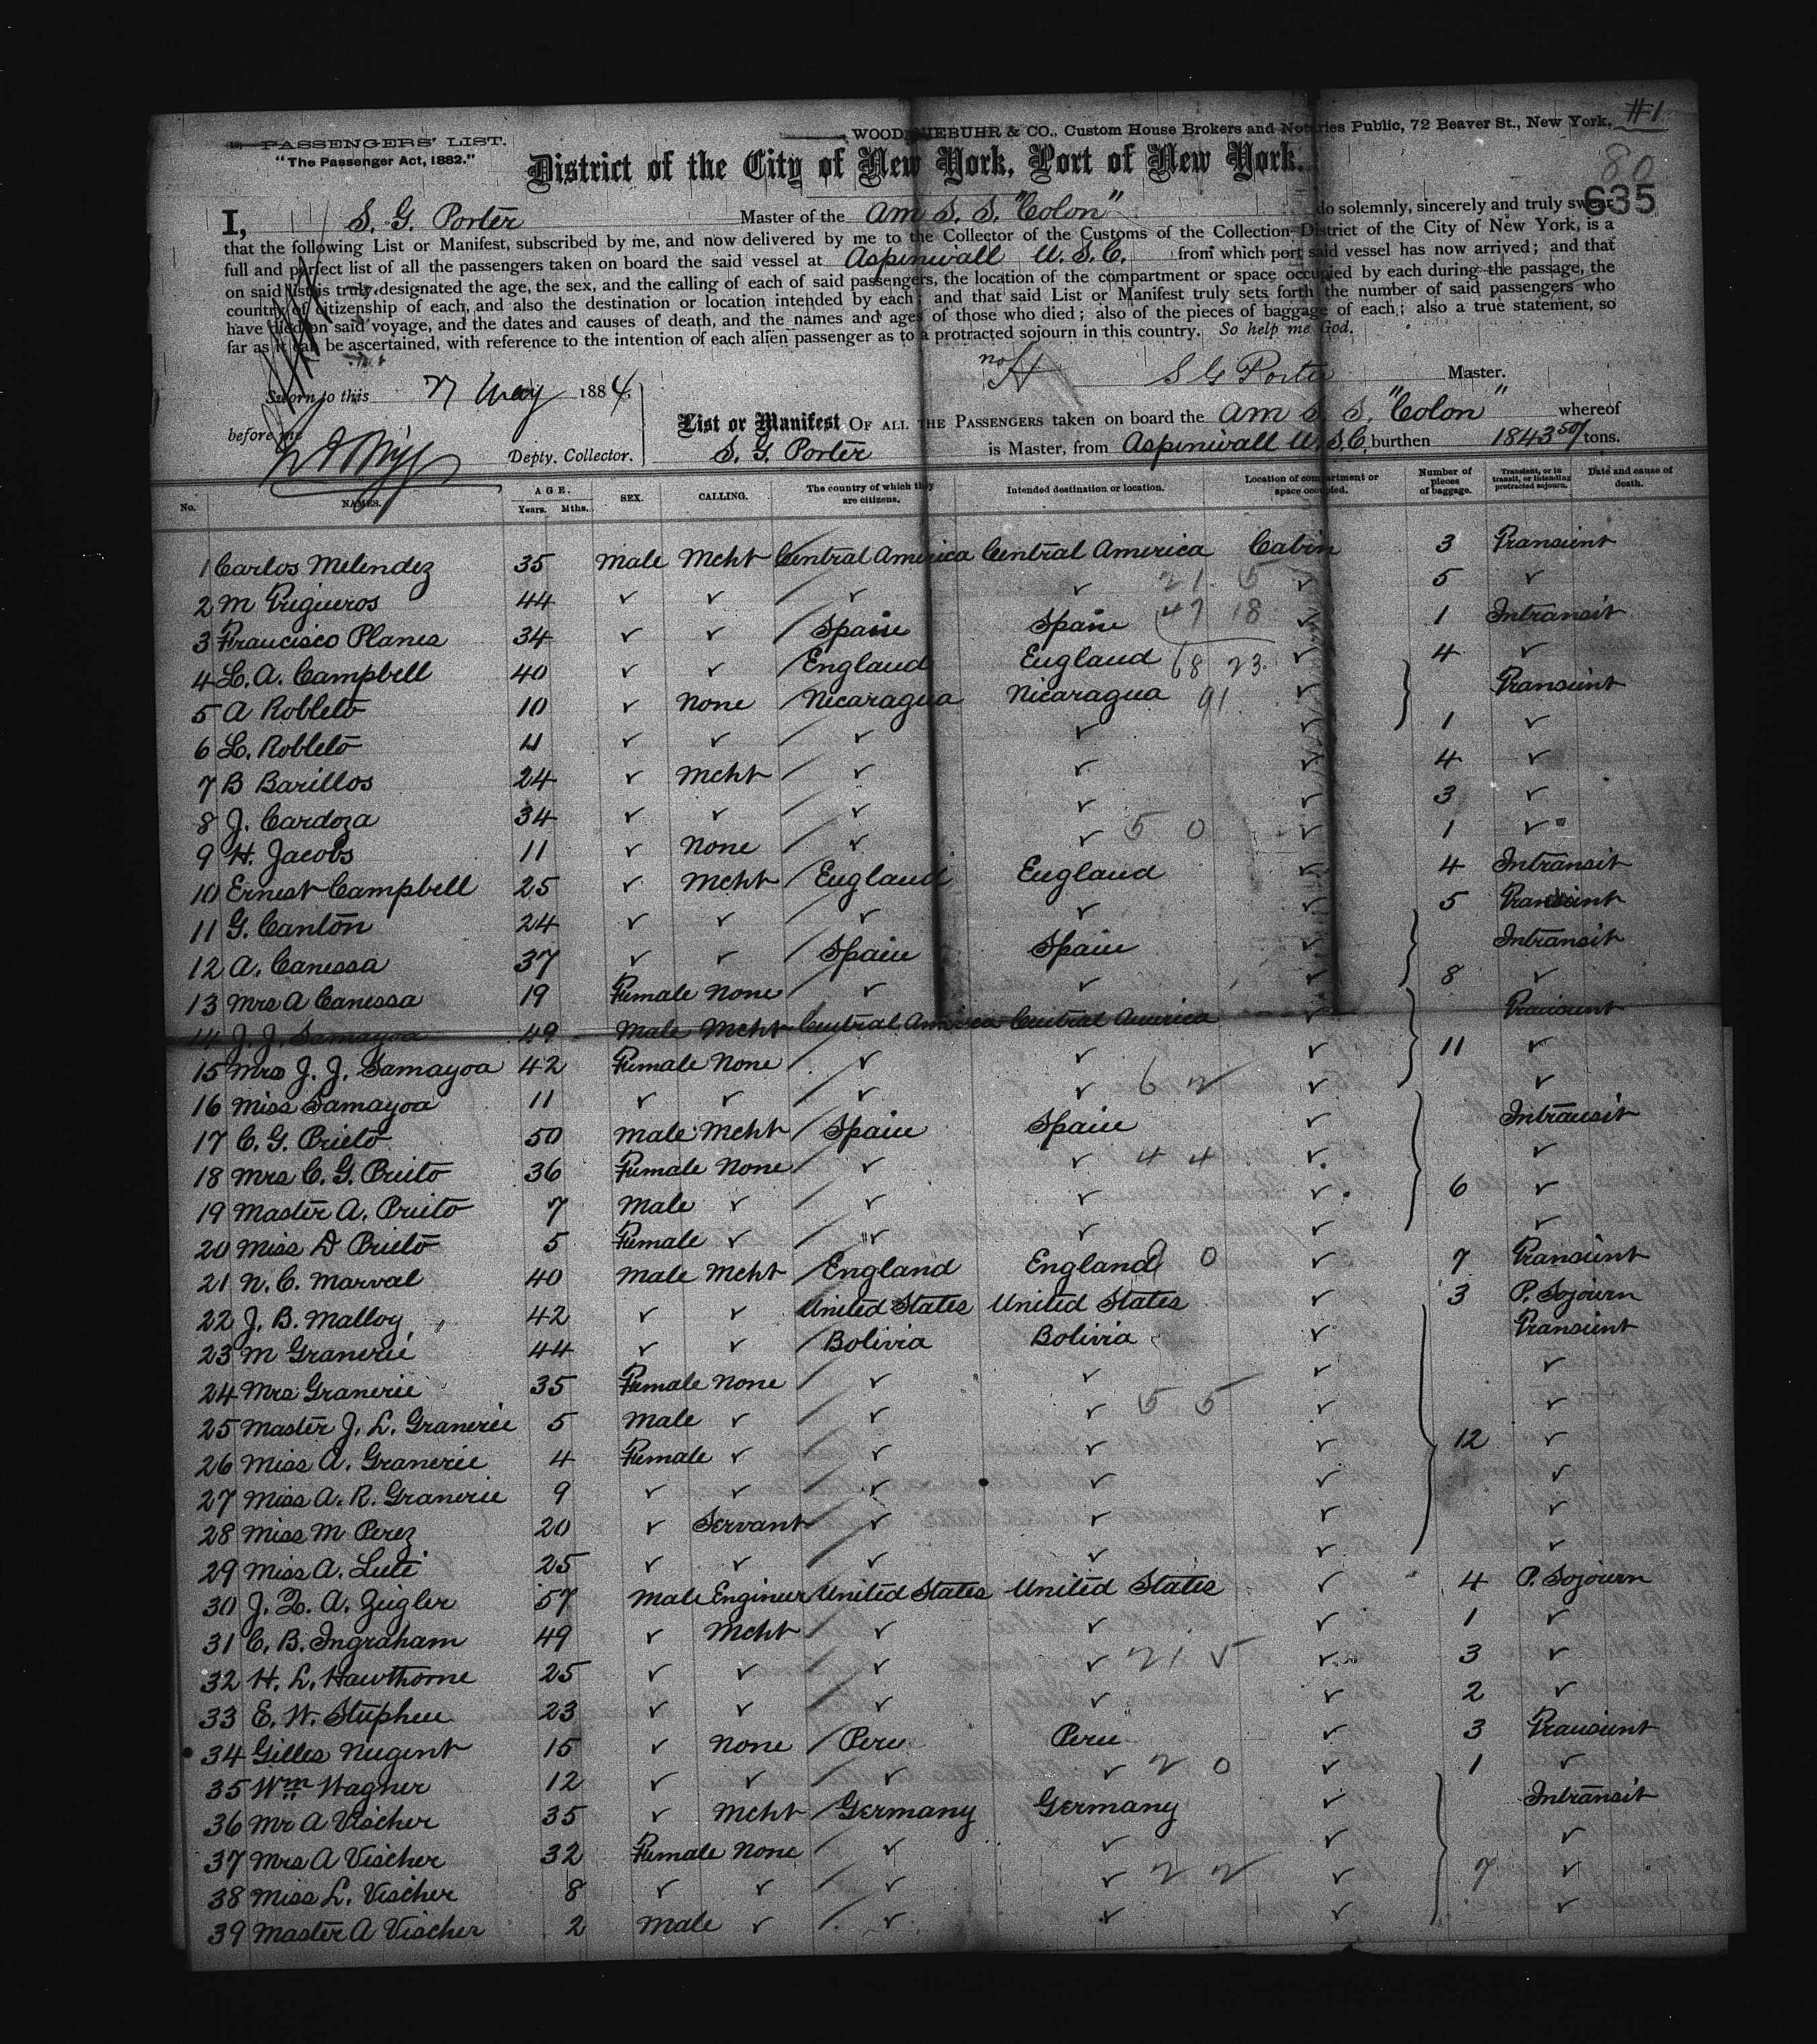 #1
PASSENGERS' LIST. WOOD, NIEBUHR & CO., Custom House Brokers and Notaries Public, 72 Beaver St., New York.
"The Passenger Act, 1882."
District of the City of New York, Port of New York.
80
635
I, S. G. Porter Master of the Am S. S. "Colon" do solemnly, sincerely and truly swear
that the following List or Manifest, subscribed by me, and now delivered by me to the Collector of the Customs of the Collection District of the City of New York, is a
full and perfect list of all the passengers taken on board the said vessel at Aspinwall U. S. C. from which port said vessel has now arrived; and that
on said list is truly designated the age, the sex, and the calling of each of said passengers, the location of the compartment or space occupied by each during the passage, the
country of citizenship of each, and also the destination or location intended by each; and that said List or Manifest truly sets forth the number of said passengers who
have died on said voyage, and the dates and causes of death, and the names and ages of those who died; also of the pieces of baggage of each; also a true statement, so
far as it can be ascertained, with reference to the intention of each alien passenger as to a protracted sojourn in this country. So help me God.
S G Porter Master.
Sworn to this 27 May 1884
before me Depty. Collector.
List or Manifest OF ALL THE PASSENGERS taken on board the Am S. S. "Colon" whereof
S. G. Porter is Master, from Aspinwall U. S. C. burthen 1843 50/ tons.
No. NAMES. AGE. Years. Mths. SEX. CALLING. The country of which they are citizens. Intended destination or location. Location of compartment or space occupied. Number of pieces of baggage. Transient, or in transit, or intending protracted sojourn. Date and cause of death.
1 Carlos Melendez 35 Male Mcht Central America Central America Cabin 3 Transient
2 M Trigueros 44 ✓ ✓ ✓ ✓ 21 5 ✓ 5 ✓
3 Francisco Planes 34 ✓ ✓ Spain Spain 47 18 ✓ 1 Intransit
4 L. A. Campbell 40 ✓ ✓ England England 68 23 ✓ 4 ✓
5 A Robleto 10 ✓ None Nicaragua Nicaragua 91 ✓ Transient
6 L. Robleto 11 ✓ ✓ ✓ ✓ ✓ 1 ✓
7 B Barillos 24 ✓ Mcht ✓ ✓ ✓ 4 ✓
8 J. Cardoza 34 ✓ ✓ ✓ ✓ ✓ 3 ✓
9 H. Jacobs 11 ✓ None ✓ ✓ 5 0 ✓ 1 ✓
10 Ernest Campbell 25 ✓ Mcht England England ✓ 4 Intransit
11 G. Canton 24 ✓ ✓ ✓ ✓ ✓ 5 Transient
12 A. Canessa 37 ✓ ✓ Spain Spain ✓ Intransit
13 Mrs A Canessa 19 Female None ✓ ✓ ✓ 8 ✓
14 J. J. Samayoa 49 Male Mcht Central America Central America ✓ Transient
15 Mrs J. J. Samayoa 42 Female None ✓ ✓ ✓ 11 ✓
16 Miss Samayoa 11 ✓ ✓ ✓ ✓ 6 2 ✓ ✓
17 C. G. Prieto 50 Male Mcht Spain Spain ✓ Intransit
18 Mrs C. G. Prieto 36 Female None ✓ ✓ 4 4 ✓ ✓
19 Master A. Prieto 7 Male ✓ ✓ ✓ ✓ 6 ✓
20 Miss D Prieto 5 Female ✓ ✓ ✓ ✓ ✓
21 N. C. Marval 40 Male Mcht England England 0 ✓ 7 Transient
22 J. B. Malloy 42 ✓ ✓ United States United States ✓ 3 P. Sojourn
23 M Granerie 44 ✓ ✓ Bolivia Bolivia ✓ Transient
24 Mrs Granerie 35 Female None ✓ ✓ ✓ ✓
25 Master J. L. Granerie 5 Male ✓ ✓ ✓ 5 5 ✓ ✓
26 Miss A. Granerie 4 Female ✓ ✓ ✓ ✓ 12 ✓
27 Miss A. R. Granerie 9 ✓ ✓ ✓ ✓ ✓ ✓
28 Miss M Perez 20 ✓ Servant ✓ ✓ ✓ ✓
29 Miss A. 25 ✓ ✓ ✓ ✓ ✓ ✓
30 J. A. Zeigler 57 Male Engineer United States United States ✓ 4 P. Sojourn
31 C. B. Ingraham 49 ✓ Mcht ✓ ✓ ✓ 1 ✓
32 H. L. Hawthorne 25 ✓ ✓ ✓ ✓ 21 5 ✓ 3 ✓
33 E. W. Stephen 23 ✓ ✓ ✓ ✓ ✓ 2 ✓
34 Gilles Nugent 15 ✓ None Peru Peru ✓ 3 Transient
35 Wm Wagner 12 ✓ ✓ ✓ ✓ 2 0 ✓ 1 ✓
36 Mr A Vischer 35 ✓ Mcht Germany Germany ✓ Intransit
37 Mrs A Vischer 32 Female None ✓ ✓ ✓ ✓
38 Miss L. Vischer 8 ✓ ✓ ✓ ✓ 2 2 ✓ 7 ✓
39 Master A Vischer 2 Male ✓ ✓ ✓ ✓ ✓